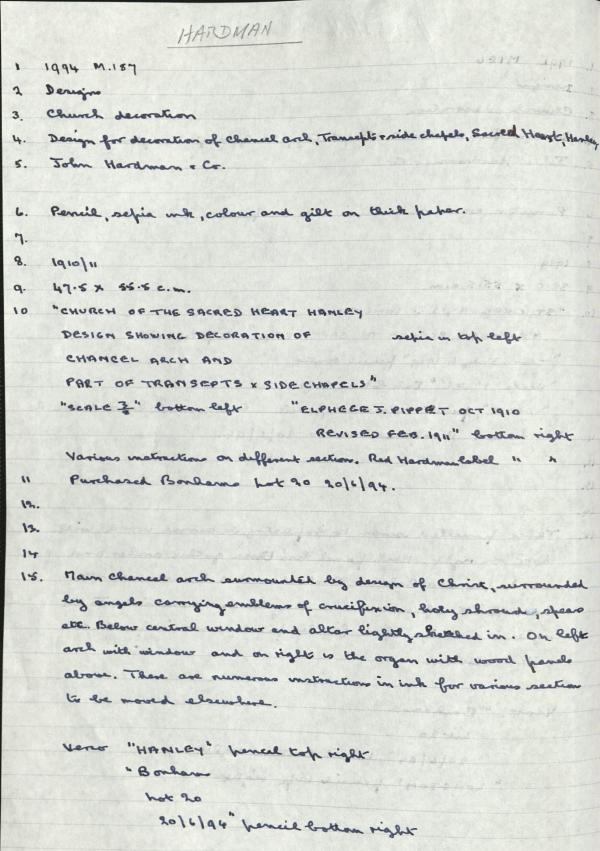 HARDMAN
1 1994 M.187
2 Designs
3. Church decoration
4. Design for decoration of Chancel arch, Transepts + side chapels, Sacred Heart, Hanley
5. John Hardman + Co.
6. Pencil, sepia ink, colour and gilt on thick paper.
7.
8. 1910/11
9. 47.5 x 55.5 c.m.
10 "CHURCH OF THE SACRED HEART HANLEY
DESIGN SHOWING DECORATION OF sepia in top left
CHANCEL ARCH AND
PART OF TRANSEPTS x SIDE CHAPELS"
"SCALE 3/8" bottom left "ELPHEGE J. PIPPET OCT 1910
REVISED FEB. 1911" bottom right
Various instruction on different section. Red Hardman label " "
11 Purchased Bonhams Lot 20 20/6/94.
12.
13.
14
15. Main Chancel arch surmounted by design of Christ, surrounded
by angels carrying emblems of crucifixion, holy shroud, spear
etc. Below central window and altar lightly sketched in. On left
arch with window and on right is the organ with wood panels
above. There are numerous instructions in ink for various section
to be moved elsewhere.
Verso "HANLEY" pencil top right
"Bonham
Lot 20
20/6/94" pencil bottom right